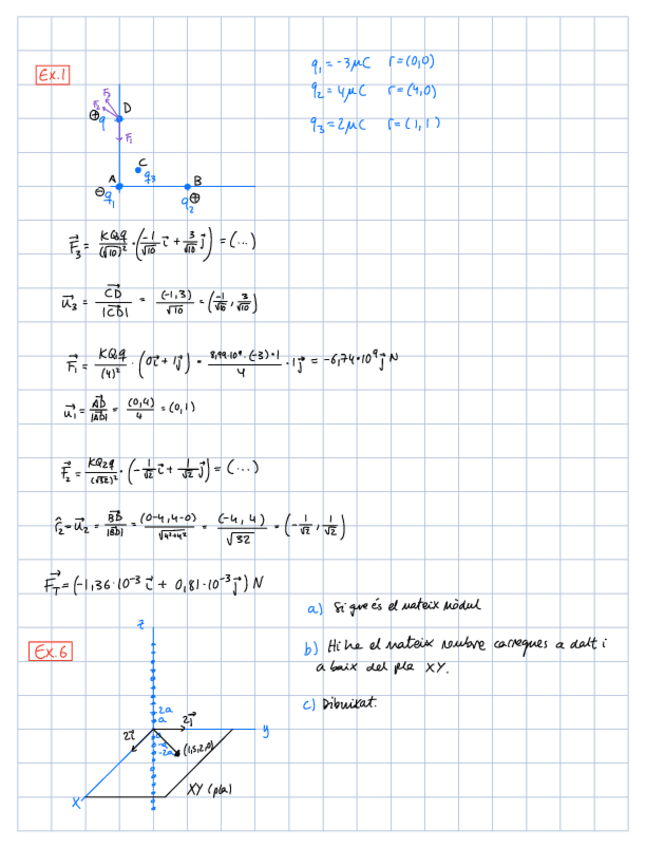 Ex.1
q₁ = -3μC r = (0,0)
q₂ = 4μC r = (4,0)
q₃ = 2μC r = (1,1)
F₂
F₃
D
⊕ q
F₁
C
A q₃ B
⊖ q₁ q₂ ⊕
F⃗₃ = KQ₃q/(√10)² · (-1/√10 i⃗ + 3/√10 j⃗) = (...)
u⃗₃ = CD⃗/|CD⃗| = (-1,3)/√10 = (-1/√10, 3/√10)
F⃗₁ = KQq/(4)² · (0i⃗ + 1j⃗) = 8,99·10⁹·(-3)·1/4 · 1j⃗ = -6,74·10⁹ j⃗ N
u⃗₁ = AD⃗/|AD⃗| = (0,4)/4 = (0,1)
F⃗₂ = KQ₂q/(√32)² · (-1/√2 i⃗ + 1/√2 j⃗) = (...)
r̂₂ = u⃗₂ = BD⃗/|BD⃗| = (0-4, 4-0)/√4²+4² = (-4, 4)/√32 = (-1/√2, 1/√2)
F⃗T = (-1,36·10⁻³ i⃗ + 0,81·10⁻³ j⃗) N
a) Si que és el mateix mòdul
Ex.6
b) Hi ha el mateix nombre carregues a dalt i
a baix del pla XY.
c) Dibuixat.
z
2a
a
2j⃗
y
2i⃗
-a
-2a
(1,5,2,0)
XY (pla)
X